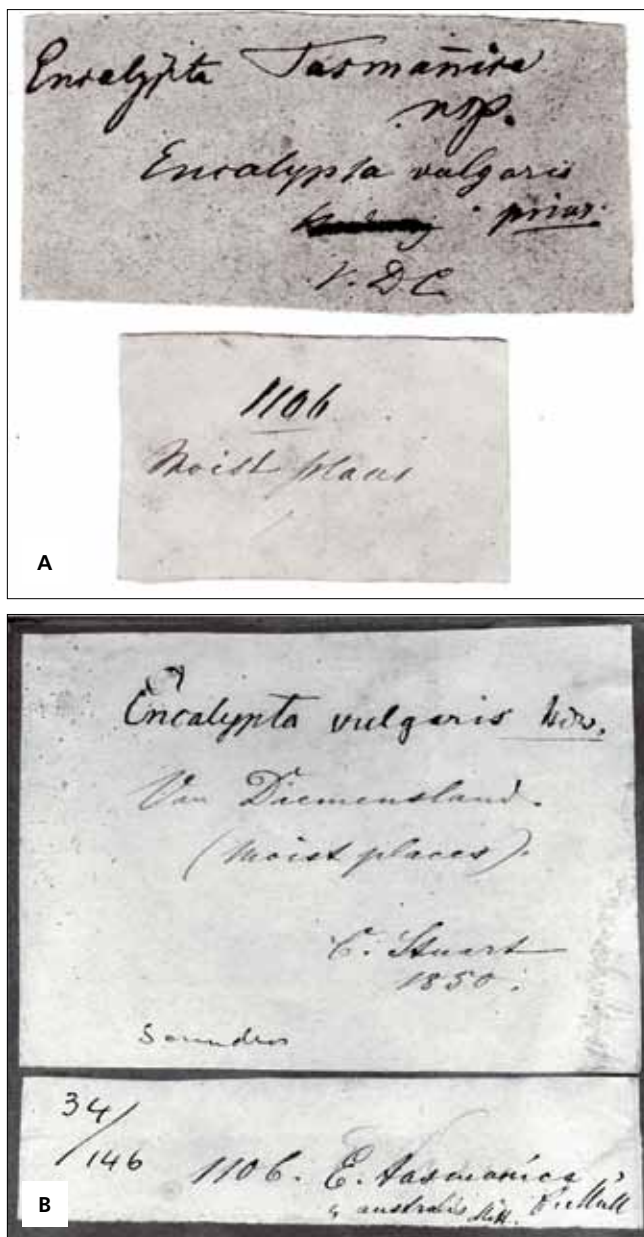 Encalypta Tasmanica
nsp.
Encalypta vulgaris
prius.
V. D. L.
1106
Moist places
A
Encalypta vulgaris Hdw.
Van Diemensland.
(Moist places).
C. Stuart
1850.
Saunders
34/146 1106. E. tasmanica
" australis Mitt.
B